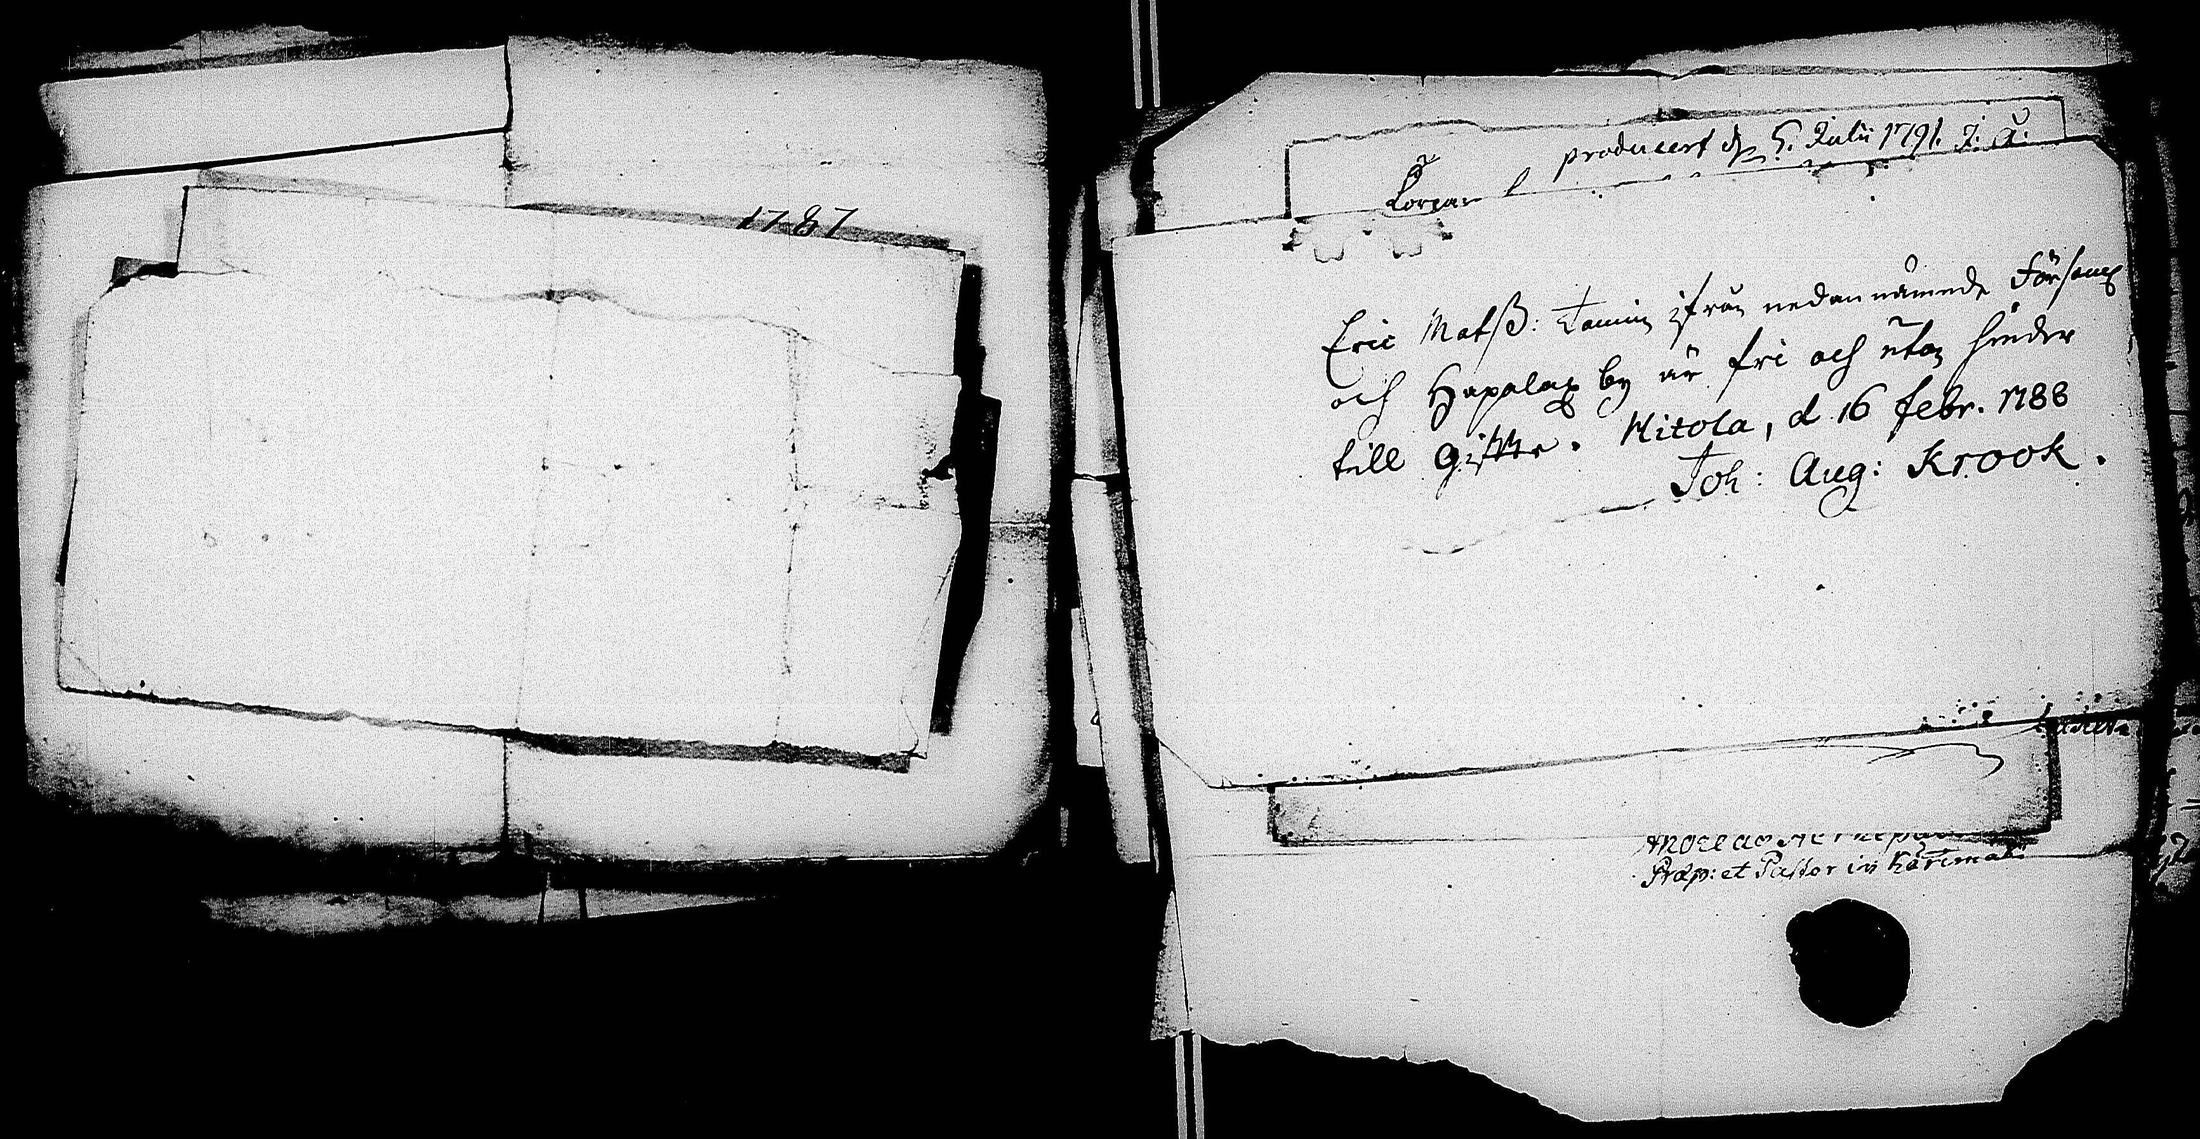 1787
producert d. 5. Julii 1791. J: A:
Eric Matsß: Tamin ifrån nedannämnde Församl
och Hapalax by är fri och utan hinder
till Gifte. Hitola, d 16 febr. 1788
Joh: Aug: Krook.
Præp: et Pastor in